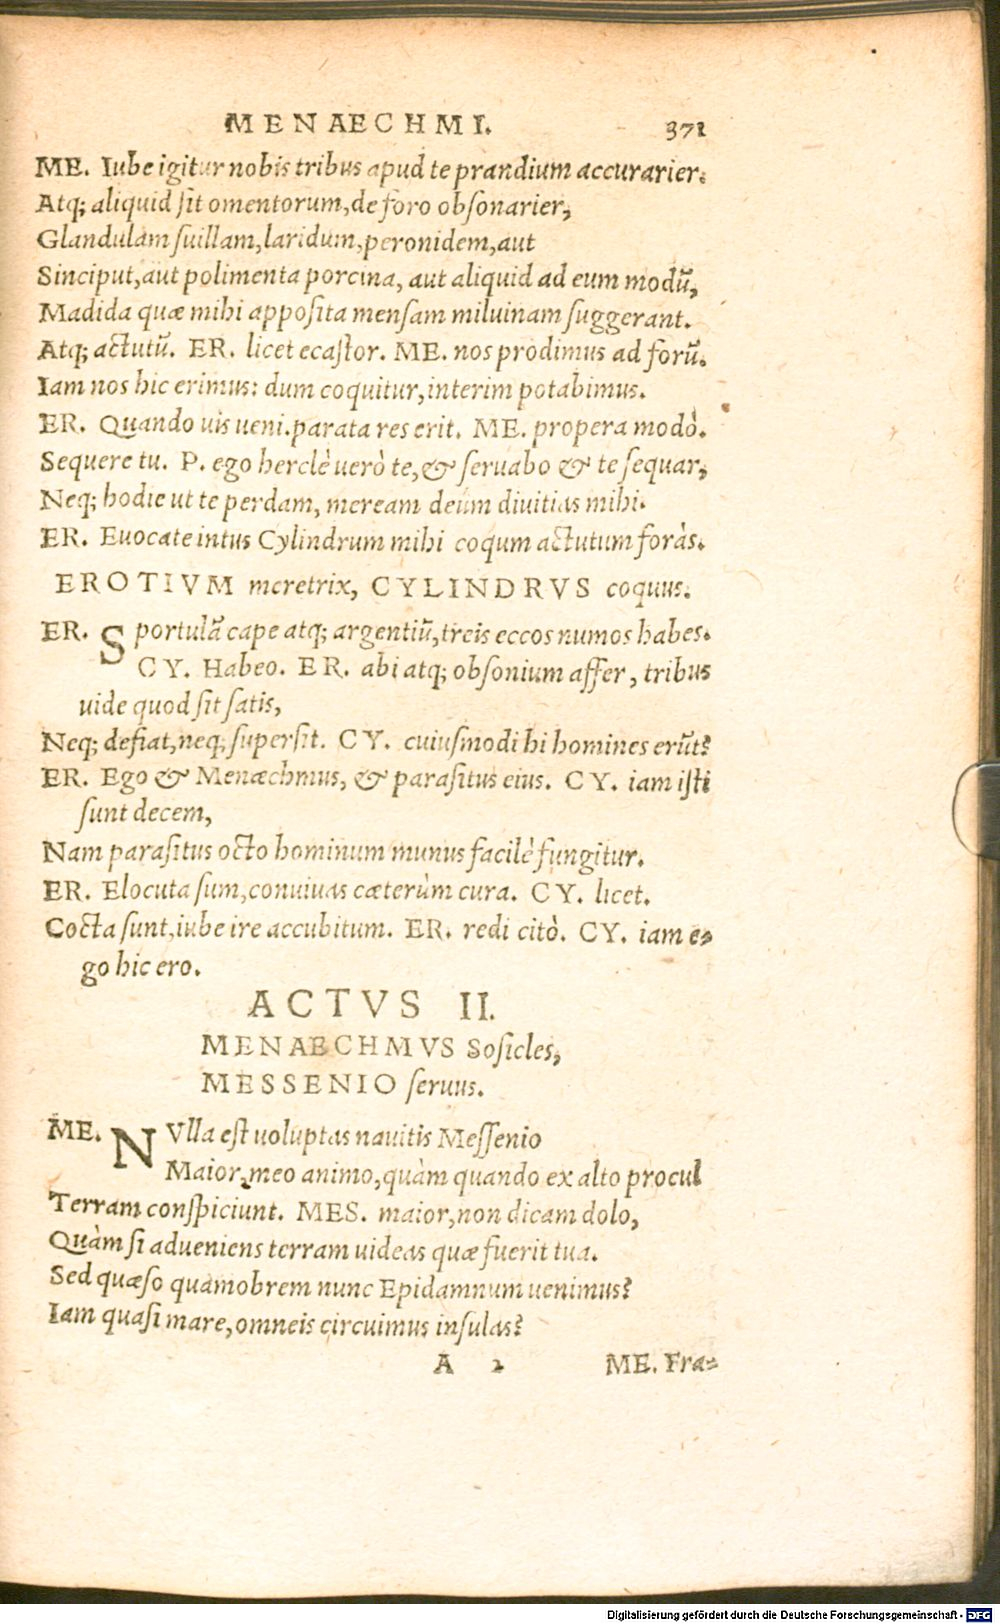 MENAECHMI. 371
ME. Iube igitur nobis tribus apud te prandium accurarier.
Atq; aliquid sit omentorum, de foro obsonarier,
Glandulam suillam, laridum, peronidem, aut
Sinciput, aut polimenta porcina, aut aliquid ad eum modũ,
Madida quæ mihi apposita mensam miluinam suggerant.
Atq; actutũ. ER. licet ecastor. ME. nos prodimus ad forũ.
Iam nos hic erimus: dum coquitur, interim potabimus.
ER. Quando uis ueni. parata res erit. ME. propera modò.
Sequere tu. P. ego herclè uerò te, & seruabo & te sequar,
Neq; hodie ut te perdam, meream deûm diuitias mihi.
ER. Euocate intus Cylindrum mihi coqum actutum foràs.
EROTIVM meretrix, CYLINDRVS coquus.
ER. Sportulã cape atq; argentiũ, treis eccos numos habes.
CY. Habeo. ER. abi atq; obsonium affer, tribus
uide quod sit satis,
Neq; defiat, neq; supersit. CY. cuiusmodi hi homines erũt?
ER. Ego & Menæchmus, & parasitus eius. CY. iam isti
sunt decem,
Nam parasitus octo hominum munus facilè fungitur.
ER. Elocuta sum, conuiuas cæterùm cura. CY. licet.
Cocta sunt, iube ire accubitum. ER. redi citò. CY. iam e-
go hic ero.
ACTVS II.
MENAECHMVS Sosicles,
MESSENIO seruus.
ME. NVlla est uoluptas nauitis Messenio
Maior, meo animo, quàm quando ex alto procul
Terram conspiciunt. MES. maior, non dicam dolo,
Quàm si adueniens terram uideas quæ fuerit tua.
Sed quæso quamobrem nunc Epidamnum uenimus?
Iam quasi mare, omneis circuimus insulas?
A 2 ME. Fra-
Digitalisierung gefördert durch die Deutsche Forschungsgemeinschaft - DFG